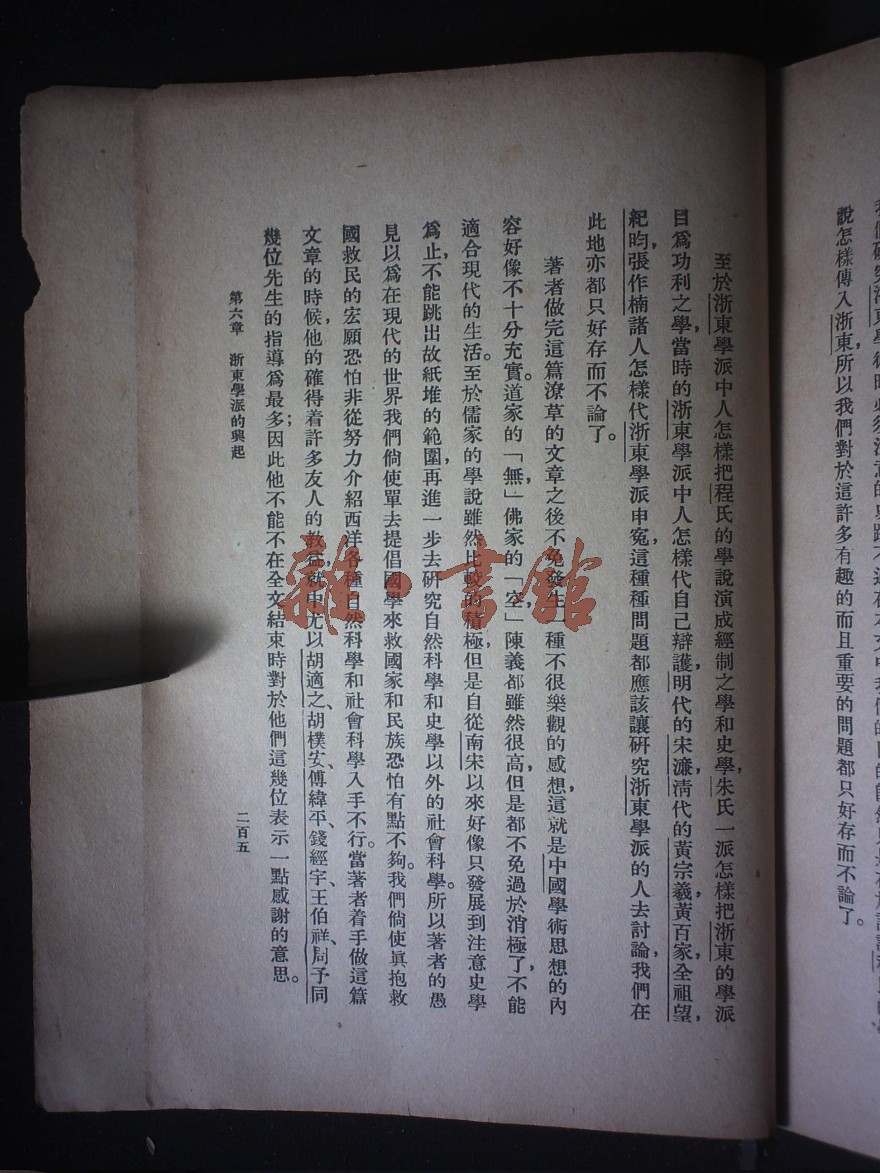 說怎樣傳入浙東，所以我們對於這許多有趣的而且重要的問題都只好存而不論了。
至於浙東學派中人怎樣把程氏的學說演成經制之學和史學，朱氏一派怎樣把浙東的學派
目爲功利之學，當時的浙東學派中人怎樣代自己辯護，明代的宋濂，清代的黃宗羲，黃百家，全祖望，
紀昀，張作楠諸人怎樣代浙東學派申寃，這種種問題都應該讓研究浙東學派的人去討論，我們在
此地亦都只好存而不論了。
著者做完這篇潦草的文章之後不免發生一種不很樂觀的感想，這就是中國學術思想的內
容好像不十分充實。道家的「無」，佛家的「空」，陳義都雖然很高，但是都不免過於消極了，不能
適合現代的生活。至於儒家的學說雖然比較的積極，但是自從南宋以來好像只發展到注意史學
爲止，不能跳出故紙堆的範圍，再進一步去研究自然科學和史學以外的社會科學。所以著者的愚
見以爲在現代的世界我們倘使單去提倡國學來救國家和民族恐怕有點不夠。我們倘使眞抱救
國救民的宏願恐怕非從努力介紹西洋各種自然科學和社會科學入手不行。當著者着手做這篇
文章的時候，他的確得着許多友人的教益，就中尤以胡適之、胡樸安、傅緯平、錢經宇、王伯祥、周予同
幾位先生的指導爲最多；因此他不能不在全文結束時對於他們這幾位表示一點感謝的意思。
第六章　浙東學派的興起
二百五
雜·書館